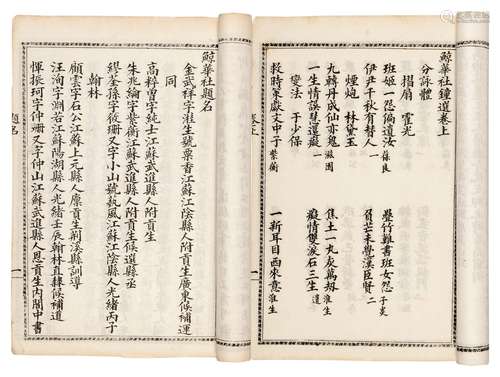 鯨華社鐘選卷上
分詠體
摺扇 霍光
班姬一怨偏遺汝 保良 罌竹難書班女怨 子炎
伊尹千秋有替人 一 負芒未覺漢臣賢 二
煙炮 林黛玉
九轉丹成仙亦鬼 滋圃 焦土一丸灰萬刼 溎生
一生情誤慧還癡 一 癡情雙淚石三生
變法 于少保
救時策獻文中子 紫衡 一新耳目西來意 溎生
鯨華社題名
金武祥字溎生號粟香江蘇江陰縣人附貢生廣東候補運
同
高粹曾字純士江蘇武進縣人附貢生
朱兆綸字紫衡江蘇武進縣人附貢生候選縣丞
繆荃孫字筱珊又字小山號藝風江蘇江陰縣人光緒丙子
翰林
顧雲字石公江蘇上元縣人廩貢生荊溪縣訓導
汪洵字淵若江蘇陽湖縣人光緒壬辰翰林直隸候補道
惲振珂字仲珊又字仲山江蘇武進縣人恩貢生內閣中書
題名
一